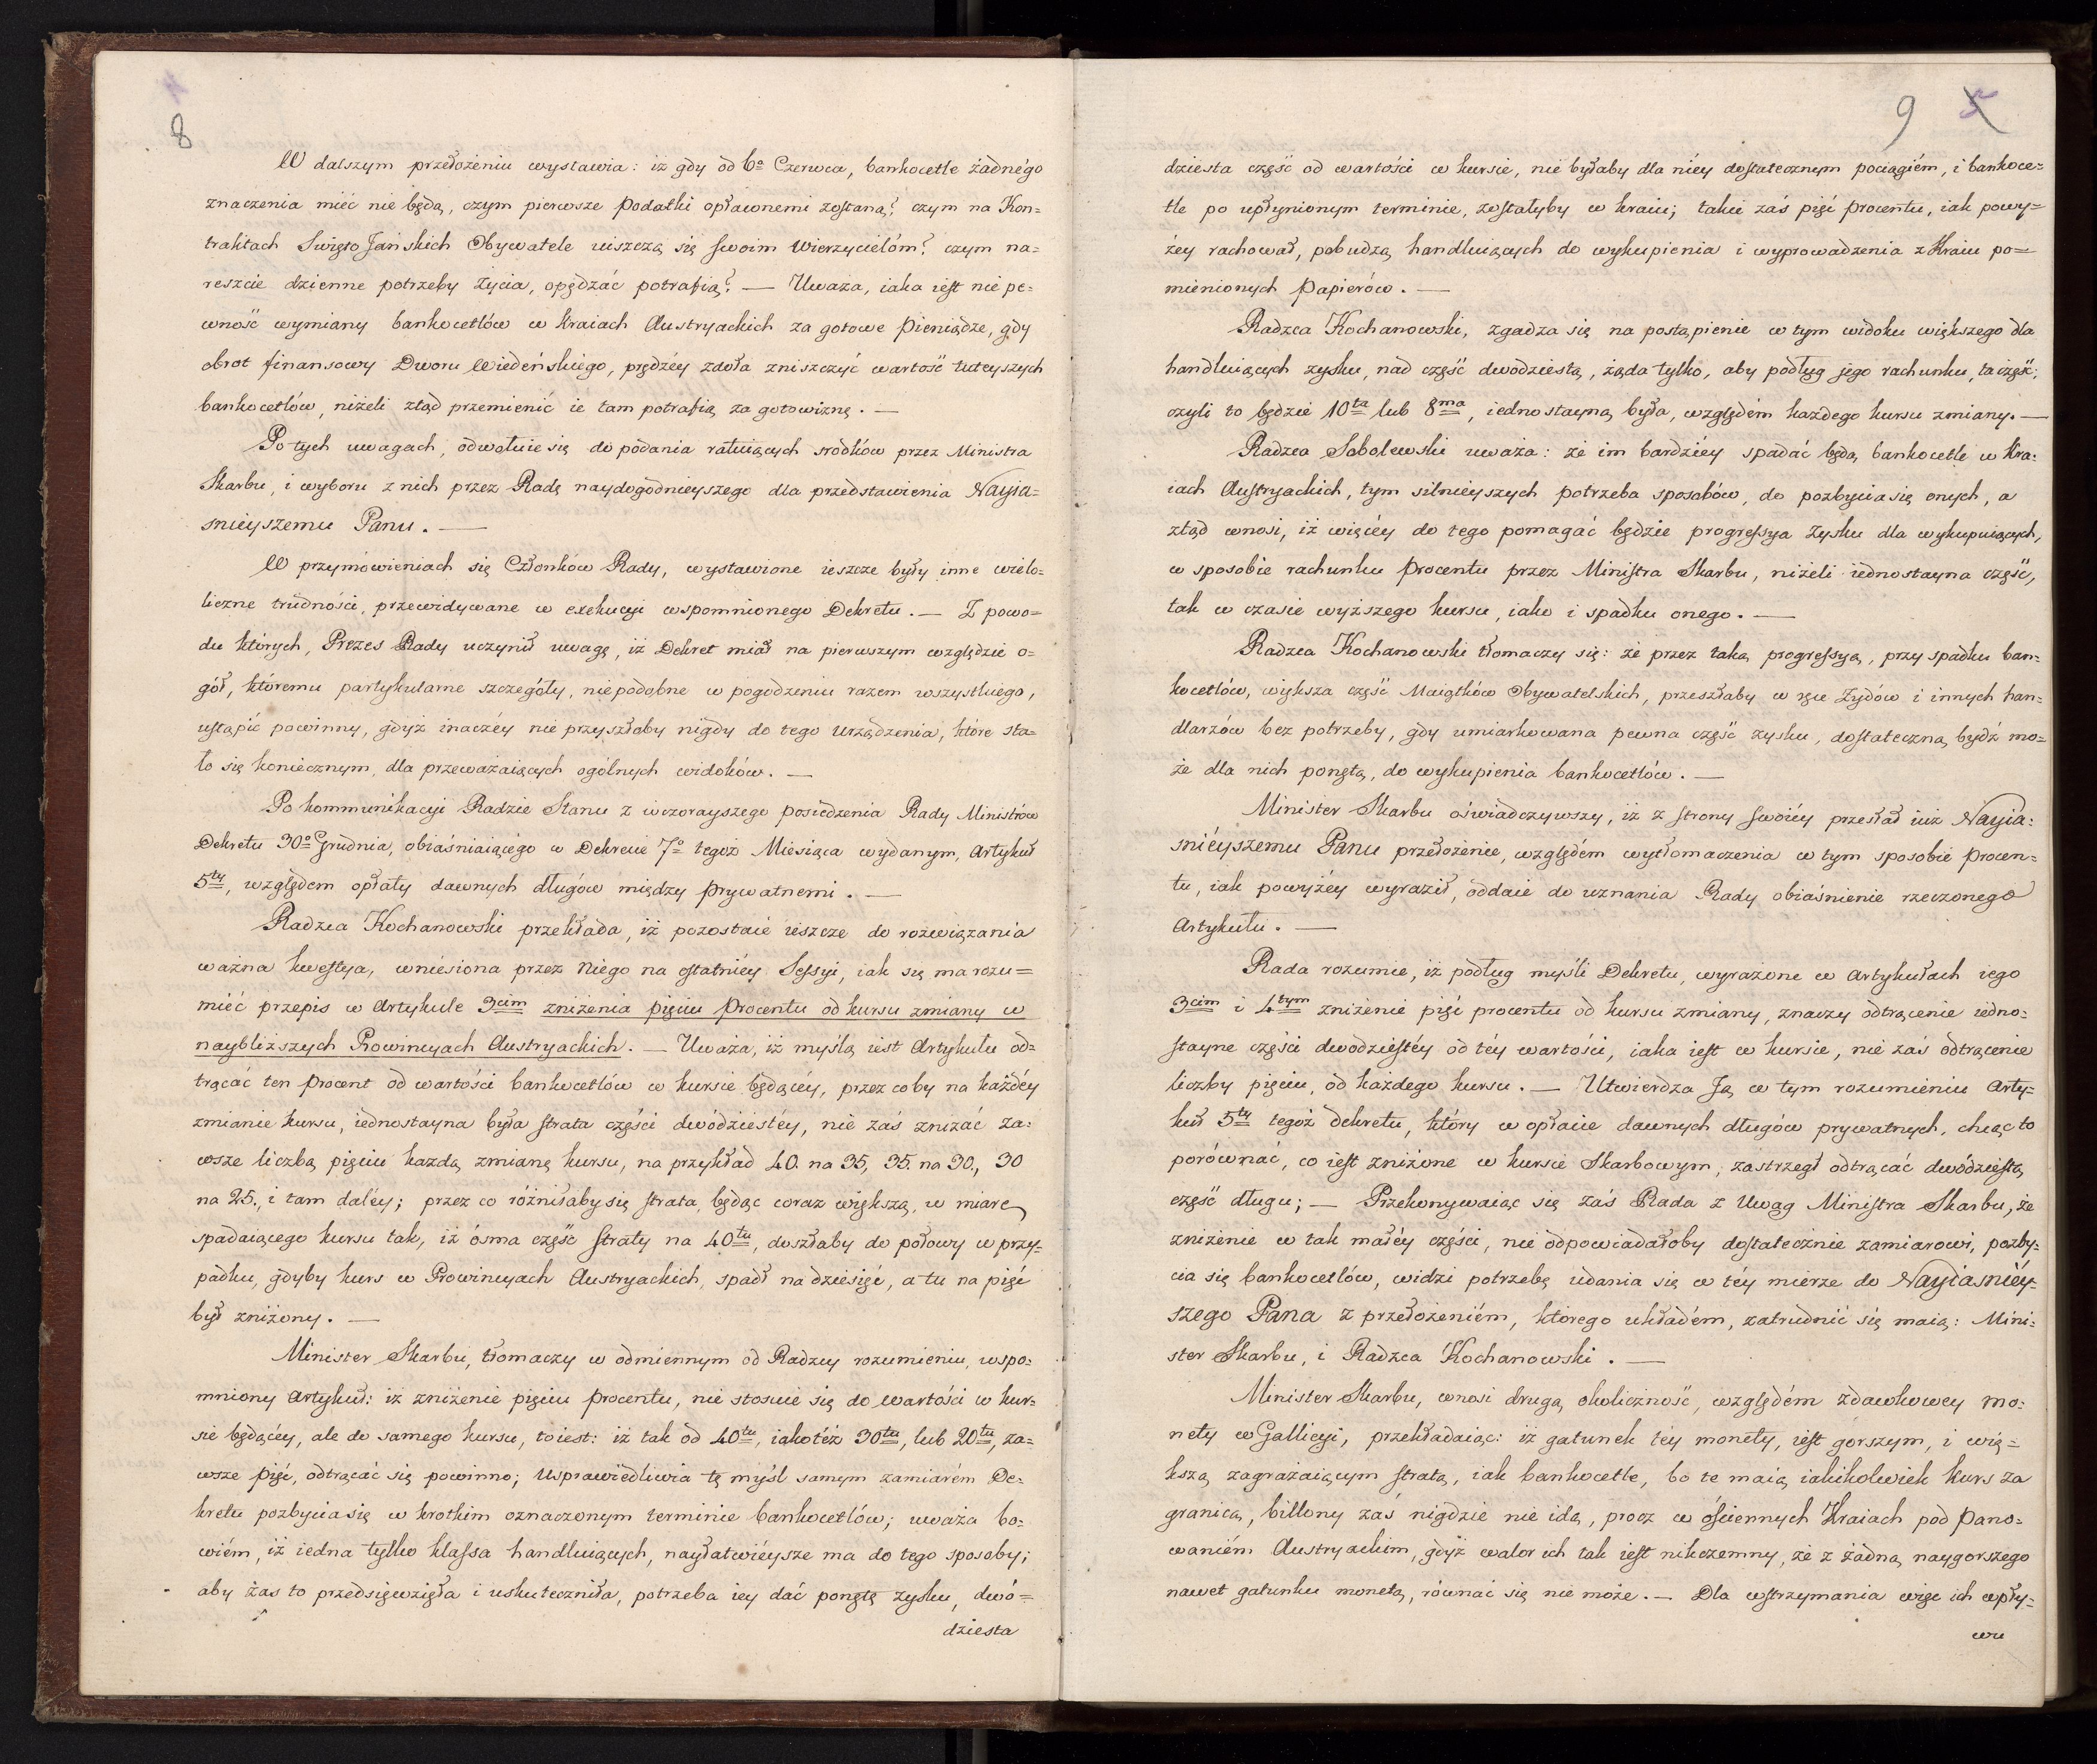 8
W dalszym przełożeniu wystawia: iż gdy od 6º Czerwca, bankocetle żadnégo
znaczenia miéć nie będą, czym pierwsze podatki opłaconemi zostaną? czym na Kon=
traktach Swięto Jańskich Obywatele uiszczą się swoim Wierzycielóm? czym na=
reszcie dzienne potrzeby życia, opędzać potrafią? — Uważa, iaka iest niepe=
wność wymiany bankocetlów w kraiach Austryackich za gotowe pieniądze, gdy
obrot finansowy Dworu Wiedeńskiego, prędzéy zdoła zniszczyć wartość tuteyszych
bankocetlów, niżeli ztąd przemienić ie tam potrafią za gotowiznę. —
Po tych uwagach, odwołuie się do podania ratuiących srodków przez Ministra
Skarbu, i wyboru z nich przez Radę naydogodnieyszego dla przedstawienia Nayia=
snieyszemu Panu. —
W przymówieniach się Członków Rady, wystawione ieszcze były inne wielo=
liczne trudności, przewidywane w exekucyi wspomnionego Dekretu. — Z powo=
du których, Prezes Rady uczynił uwagę, iż Dekret miał na pierwszym względzie o=
gół, któremu partykularne szczegóły, niepodobne w pogodzeniu razem wszystkiego,
ustąpić powinny, gdyż inaczéy nie przyszłoby nigdy do tego urządzenia, które sta=
ło się koniecznym, dla przeważaiących ogólnych widoków. —
Po kommunikacyi Radzie Stanu z wczorayszego posiedzenia Rady Ministrów
Dekretu 30º Grudnia, obiaśniaiącégo w Dekrecie 7º tegoż Miesiąca wydanym, Artykuł
5ty, względem opłaty dawnych długów między prywatnemi. —
Radzca Kochanowski przekłada, iż pozostaié ieszcze do rozwiązania
ważna kwestya, wniésiona przez niego na ostatniéy Sessyi, iak się ma rozu=
mieć przepis w Artykule 3cim zniżenia pięciu procentu od kursu zmiany w
naybliższych Prowincyach Austryackich. — Uważa, iż myślą iest Artykułu od=
trącać ten procent od wartości bankocetlów w kursie będącéy, przez co by na każdéy
zmianie kursu, iednostayna była strata części dwódziestéy, nie zaś zniżać za=
wsze liczbą pięciu każdą zmianę kursu, na przykład 40. na 35, 35. na 30, 30
na 25., i tam daléy; przez co różniłaby się strata, będąc coraz większą, w miarę
spadaiącego kursu tak, iż ósma część straty na 40tu, doszłaby do połowy w przy=
padku, gdyby kurs w Prowincyach Austryackich, spadł na dziesięć, a tu na pięć
był zniżony. —
Minister Skarbu, tłomaczy w odmiennym od Radzcy rozumieniu, wspo=
mniony Artykuł: iż zniżenie pięciu procentu, nie stosuie się do wartości w kur=
sie będącéy, ale do samego kursu, to iest: iż tak od 40tu, iako też 30tu, lub 20tu, za=
wsze pięć, odtrącać się powinno; Usprawiedliwia tę myśl samym zamiarém De=
kretu pozbycia się w krotkim oznaczonym terminie bankocetlów; uważa bo=
wiém, iż iedna tylko klassa handluiących, nayłatwiéysze ma do tego sposoby;
aby zas to przedsięwzięła i uskuteczniła, potrzeba iey dać ponętę zysku, dwó=
dziesta
9 5
dziesta część od wartości w kursie, nie byłaby dla niéy dostatecznym pociągiém, i bankoce=
tle po upłynionym terminie, zostałyby w kraiu; takie zaś pięć procentu, iak powy=
żey rachował, pobudzą handluiących do wykupienia i wyprowadzenia z Kraiu po=
mienionych papierów. —
Radzca Kochanowski, zgadza się na postąpienie w tym widoku większego dla
handluiących zysku, nad część dwódziestą, żąda tylko, aby podług jego rachunku, ta część,
czyli to będzie 10ta lub 8ma, iednostayną była, względém każdego kursu zmiany. —
Radzca Sobolewski uważa: że im bardziéy spadać będą bankocetle w Kra=
iach Austryackich, tym silnieyszych potrzeba sposobów, do pozbycia się onych, a
ztąd wnosi, iż więcéy do tego pomagać będzie progressya zysku dla wykupuiących,
w sposobie rachunku procentu przez Ministra Skarbu, niżeli iednostayna część,
tak w czasie wyższego kursu, iako i spadku onego. —
Radzca Kochanowski tłomaczy się: że przez taką progressyą, przy spadku ban=
kocetlów, większa część Maiątków Obywatelskich, przeszłaby w ręce Żydów i innych han=
dlarzów bez potrzeby, gdy umiarkowana pewna część zysku, dostateczną bydź mo=
że dla nich ponętą, do wykupienia bankocetlów. —
Minister Skarbu oświadczywszy, iż z strony swoiéy przesłał iuż Nayia=
sniéyszemu Panu przełożenie, względém wytłomaczenia w tym sposobie procen=
tu, iak powyżéy wyraził, oddaie do uznania Rady obiaśnienie rzeczonego
Artykułu. —
Rada rozumie, iż podług myśli Dekretu, wyrażone w Artykułach iego
3cim i 4tym zniżenie pięć procentu od kursu zmiany, znaczy odtrącenie iedno=
stayne części dwodziestéy od téy wartości, iaka iest w kursie, nie zaś odtrącenie
liczby pięciu, od każdego kursu. — Utwierdza Ją w tym rozumieniu Arty=
kuł 5ty tegoż dekretu, który w opłacie dawnych długów prywatnych, chcąc to
porównać, co iest zniżone w kursie Skarbowym, zastrzegł odtrącać dwódziestą
część długu; — Przekonywaiąc się zaś Rada z Uwag Ministra Skarbu, że
zniżenie w tak małéy części, nie odpowiadałoby dostatecznie zamiarowi, pozby=
cia się bankocetlów, widzi potrzebę udania się w téy mierze do Nayiasniéy=
szego Pana z przełożeniém, którego układém, zatrudnić się maią: Mini=
ster Skarbu, i Radzca Kochanowski. —
Minister Skarbu, wnosi drugą okoliczność, względém zdawkowey mo=
nety w Gallicyi, przekładaiąc: iż gatunek téy monéty, iest gorszym, i wię=
kszą zagrażaiącym stratą, iak bankocetle, bo te maią iakikolwiek kurs za
granicą, billony zaś nigdzie nie idą, procz w ościennych Kraiach pod Pano=
waniém Austryackim, gdyż walor ich tak iest nikczemny, że z żadną naygorszego
nawet gatunku monetą, równać się nie może. — Dla wstrzymania więc ich wpły=
wu